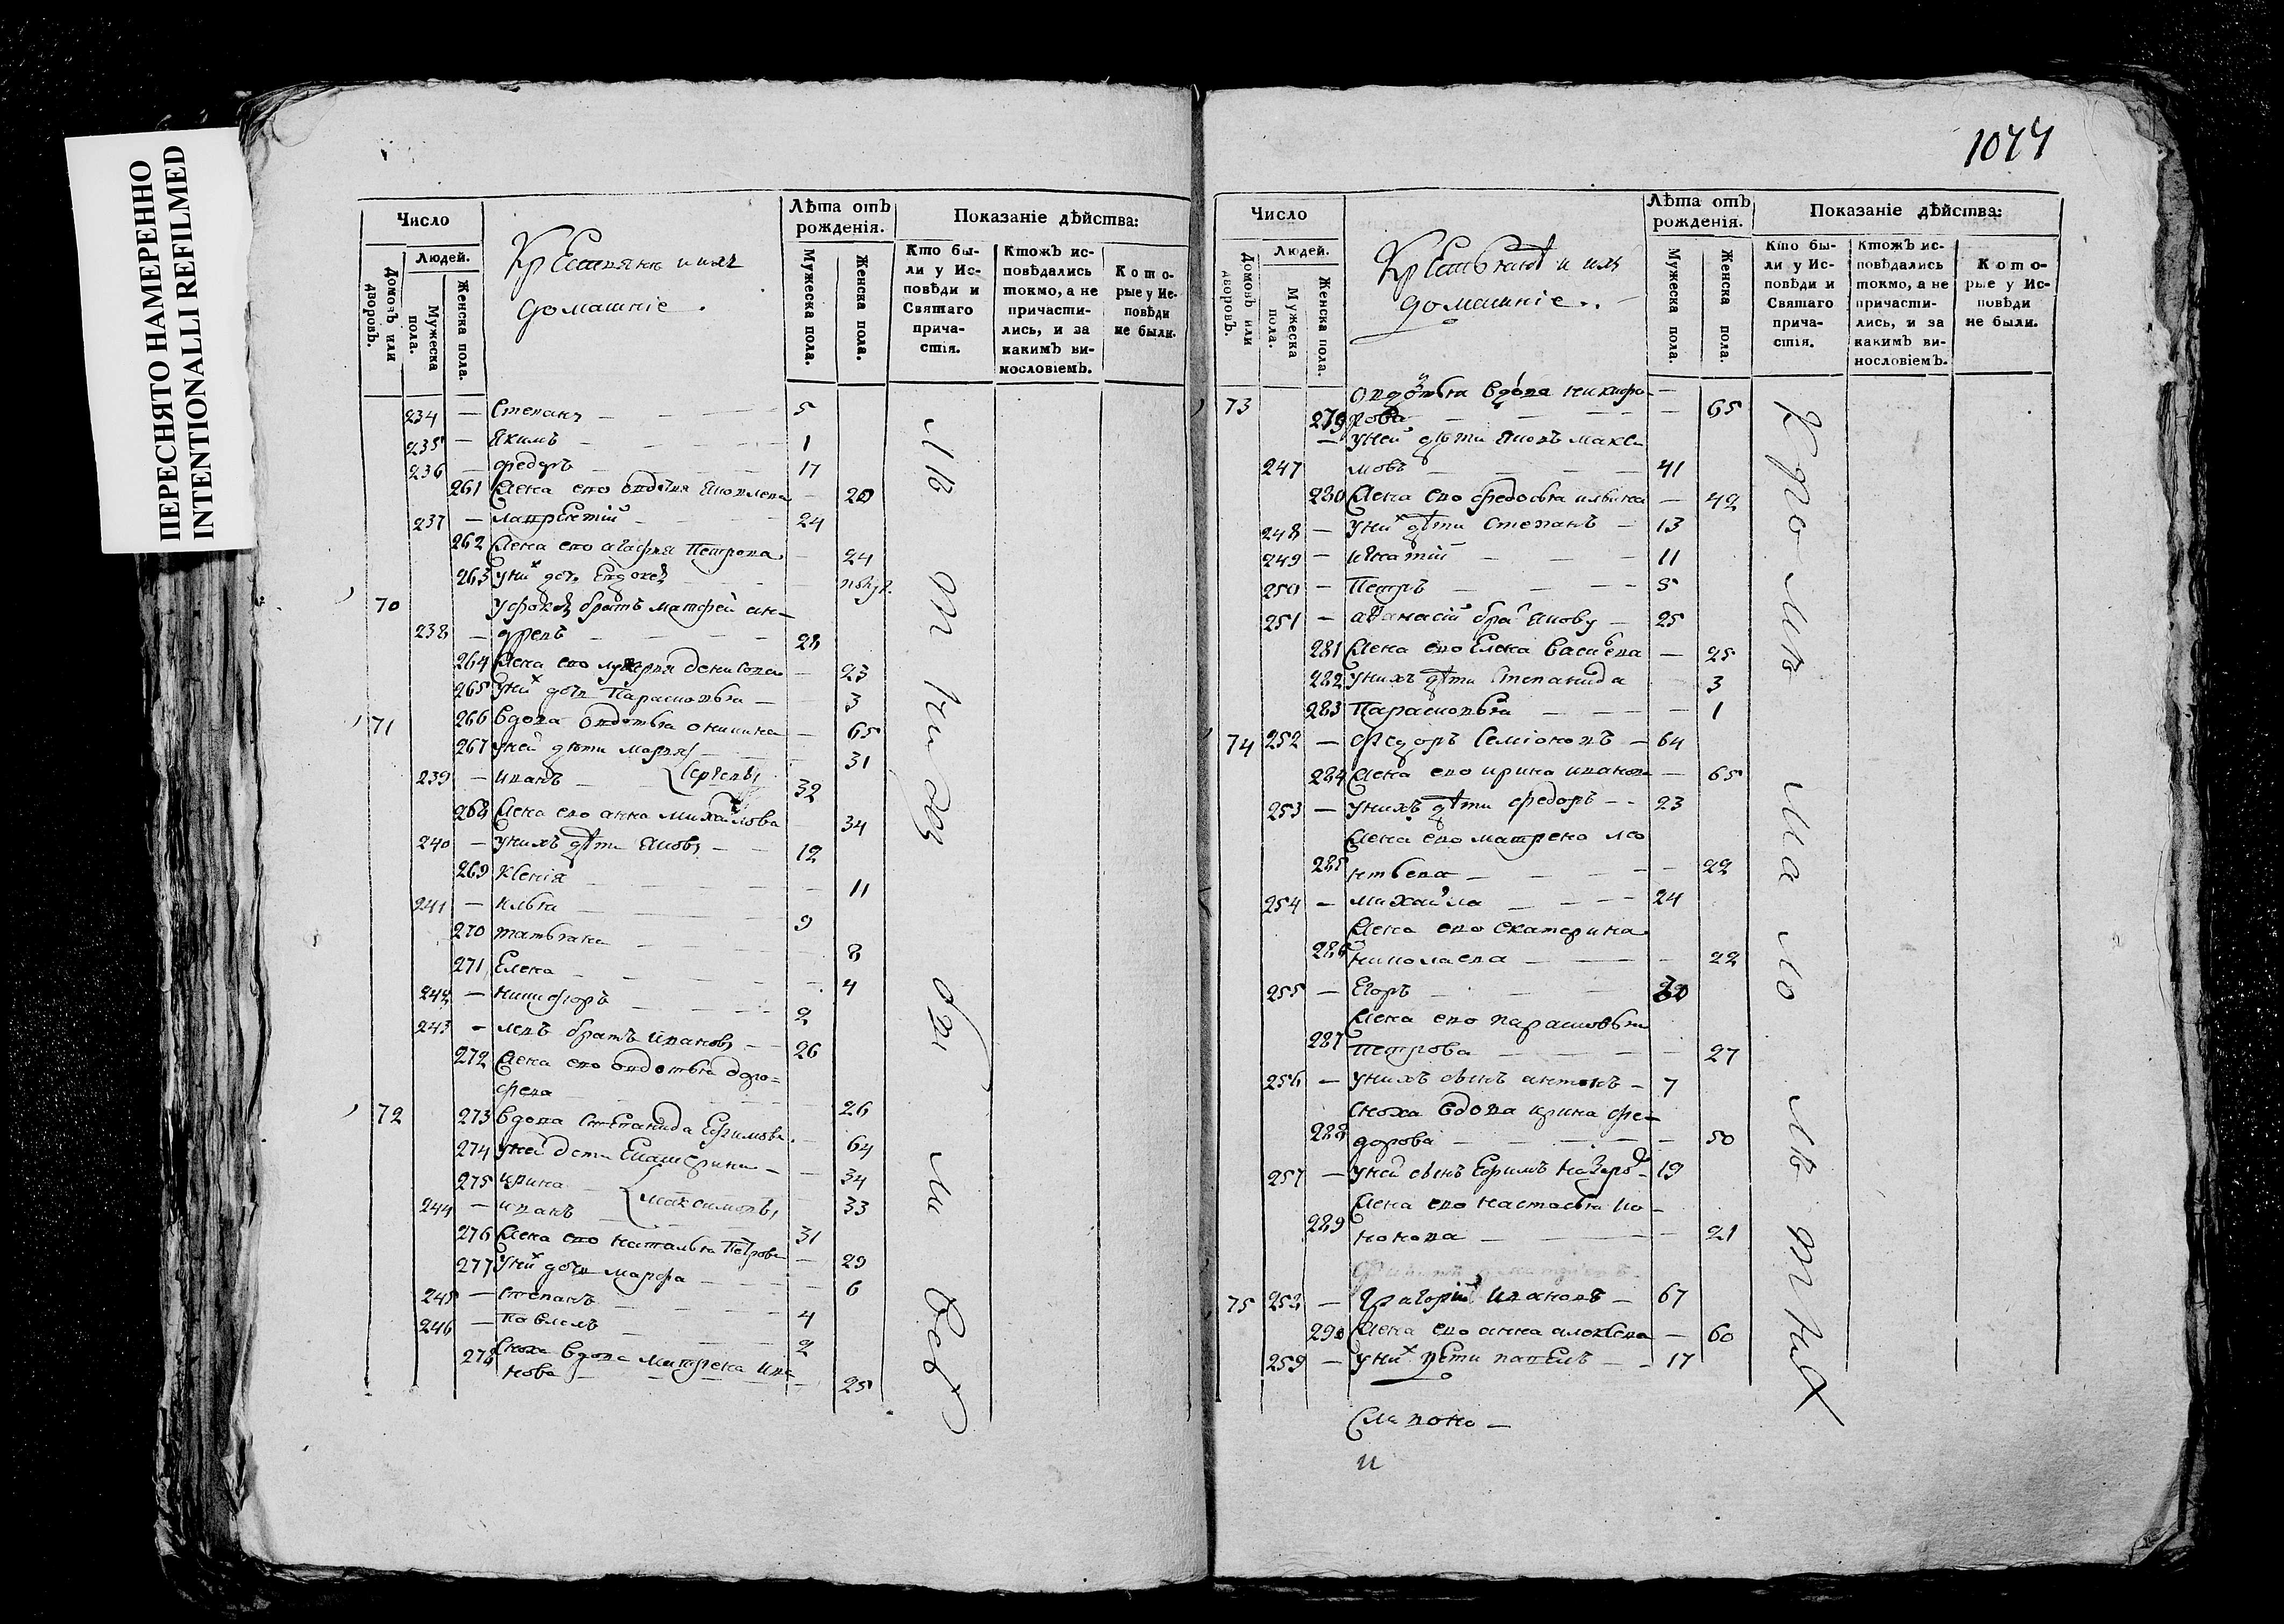 ПЕРЕСНЯТО НАМЕРЕННО
INTENTIONALLI REFILMED
Число
Людей.
Домовъ или дворовъ.
Мужеска пола.
Женска пола.
Крестьяне и ихъ
домашніе.
Лѣта отъ рожденія.
Мужеска пола.
Женска пола.
Показаніе дѣйства:
Кто были у Исповѣди и Святаго причастія.
Ктожъ исповѣдались токмо, а не причастились, и за какимъ винословіемъ.
Которые у Исповѣди не были.
234 — Степанъ — 5
235 — Якимъ — 1
236 — Федоръ — 17
261 Жена его Овдотья Яковлева — 20
237 — Лаврентій — 24
262 Жена его Агафья Петрова — 24
263 у них дочь — полг.
70 братъ Матфей Ан-
238 — дреевъ — 28
264 Жена его Лукерья Денисова — 23
265 у них дочь Парасковья — 3
71 266 вдова Овдотья — 65
267 у ней дѣти Марья — 31
239 — Иванъ — Сергѣевы 32
268 Жена его Анна Михайлова 34
240 — у нихъ дѣти Яковъ — 12
269 Ксенія — 11
241 — Илья — 9
270 Татьяна — 8
271 Елена — 4
242 — Никифоръ — 2
243 — Левъ братъ Ивановъ — 26
272 Жена его Овдотья Доро=
феева — 26
72 273 вдова Степанида Ефимова — 64
274 у ней дети Екатерина — 34
275 Ирина — Максимовы 33
244 — Иванъ — 31
276 Жена его Наталья Петрова — 29
277 у них дочь Марфа — 6
245 — Степанъ — 4
246 — Павелъ — 2
278 Сноха вдова Матрена Ива
нова — 25
1077
Число
Людей.
Домовъ или дворовъ.
Мужеска пола.
Женска пола.
Крестьяне и ихъ
домашніе.
Лѣта отъ рожденія.
Мужеска пола.
Женска пола.
Показаніе дѣйства:
Кто были у Исповѣди и Святаго причастія.
Ктожъ исповѣдались токмо, а не причастились, и за какимъ винословіемъ.
Которые у Исповѣди не были.
73 Овдотья вдова Никифо-
279 рова — 65
— у ней дѣти Яковъ Макси
247 мовъ — 41
280 Жена его Федосья Ильина — 42
248 — у них дѣти Степанъ — 13
249 — Игнатій — 11
250 — Петръ — 5
251 — Афанасій бра Якову — 25
281 Жена его Елена Васильева — 25
282 у нихъ дѣти Степанида 3
283 Парасковья — 1
74 252 — Федоръ Семіоновъ — 64
284 Жена его Ирина Иванова — 65
253 — у нихъ дѣти Федоръ — 23
Жена его Матрена Лео
285 нтьева — 22
254 — Михайла — 24
Жена его Екатерина
286 Николаева — 22
255 — Егоръ —
Жена его Парасковья
287 Петрова — 27
256 — у нихъ сынъ Антонъ — 7
сноха вдова Ирина Фе-
288 дорова — 50
257 — у ней сынъ Ефимъ — 19
Жена его Настасья
289 — 21
75 258 — Григорій Ивановъ — 67
290 Жена его Анна Алексѣева — 60
259 — у них дѣти Павелъ — 17